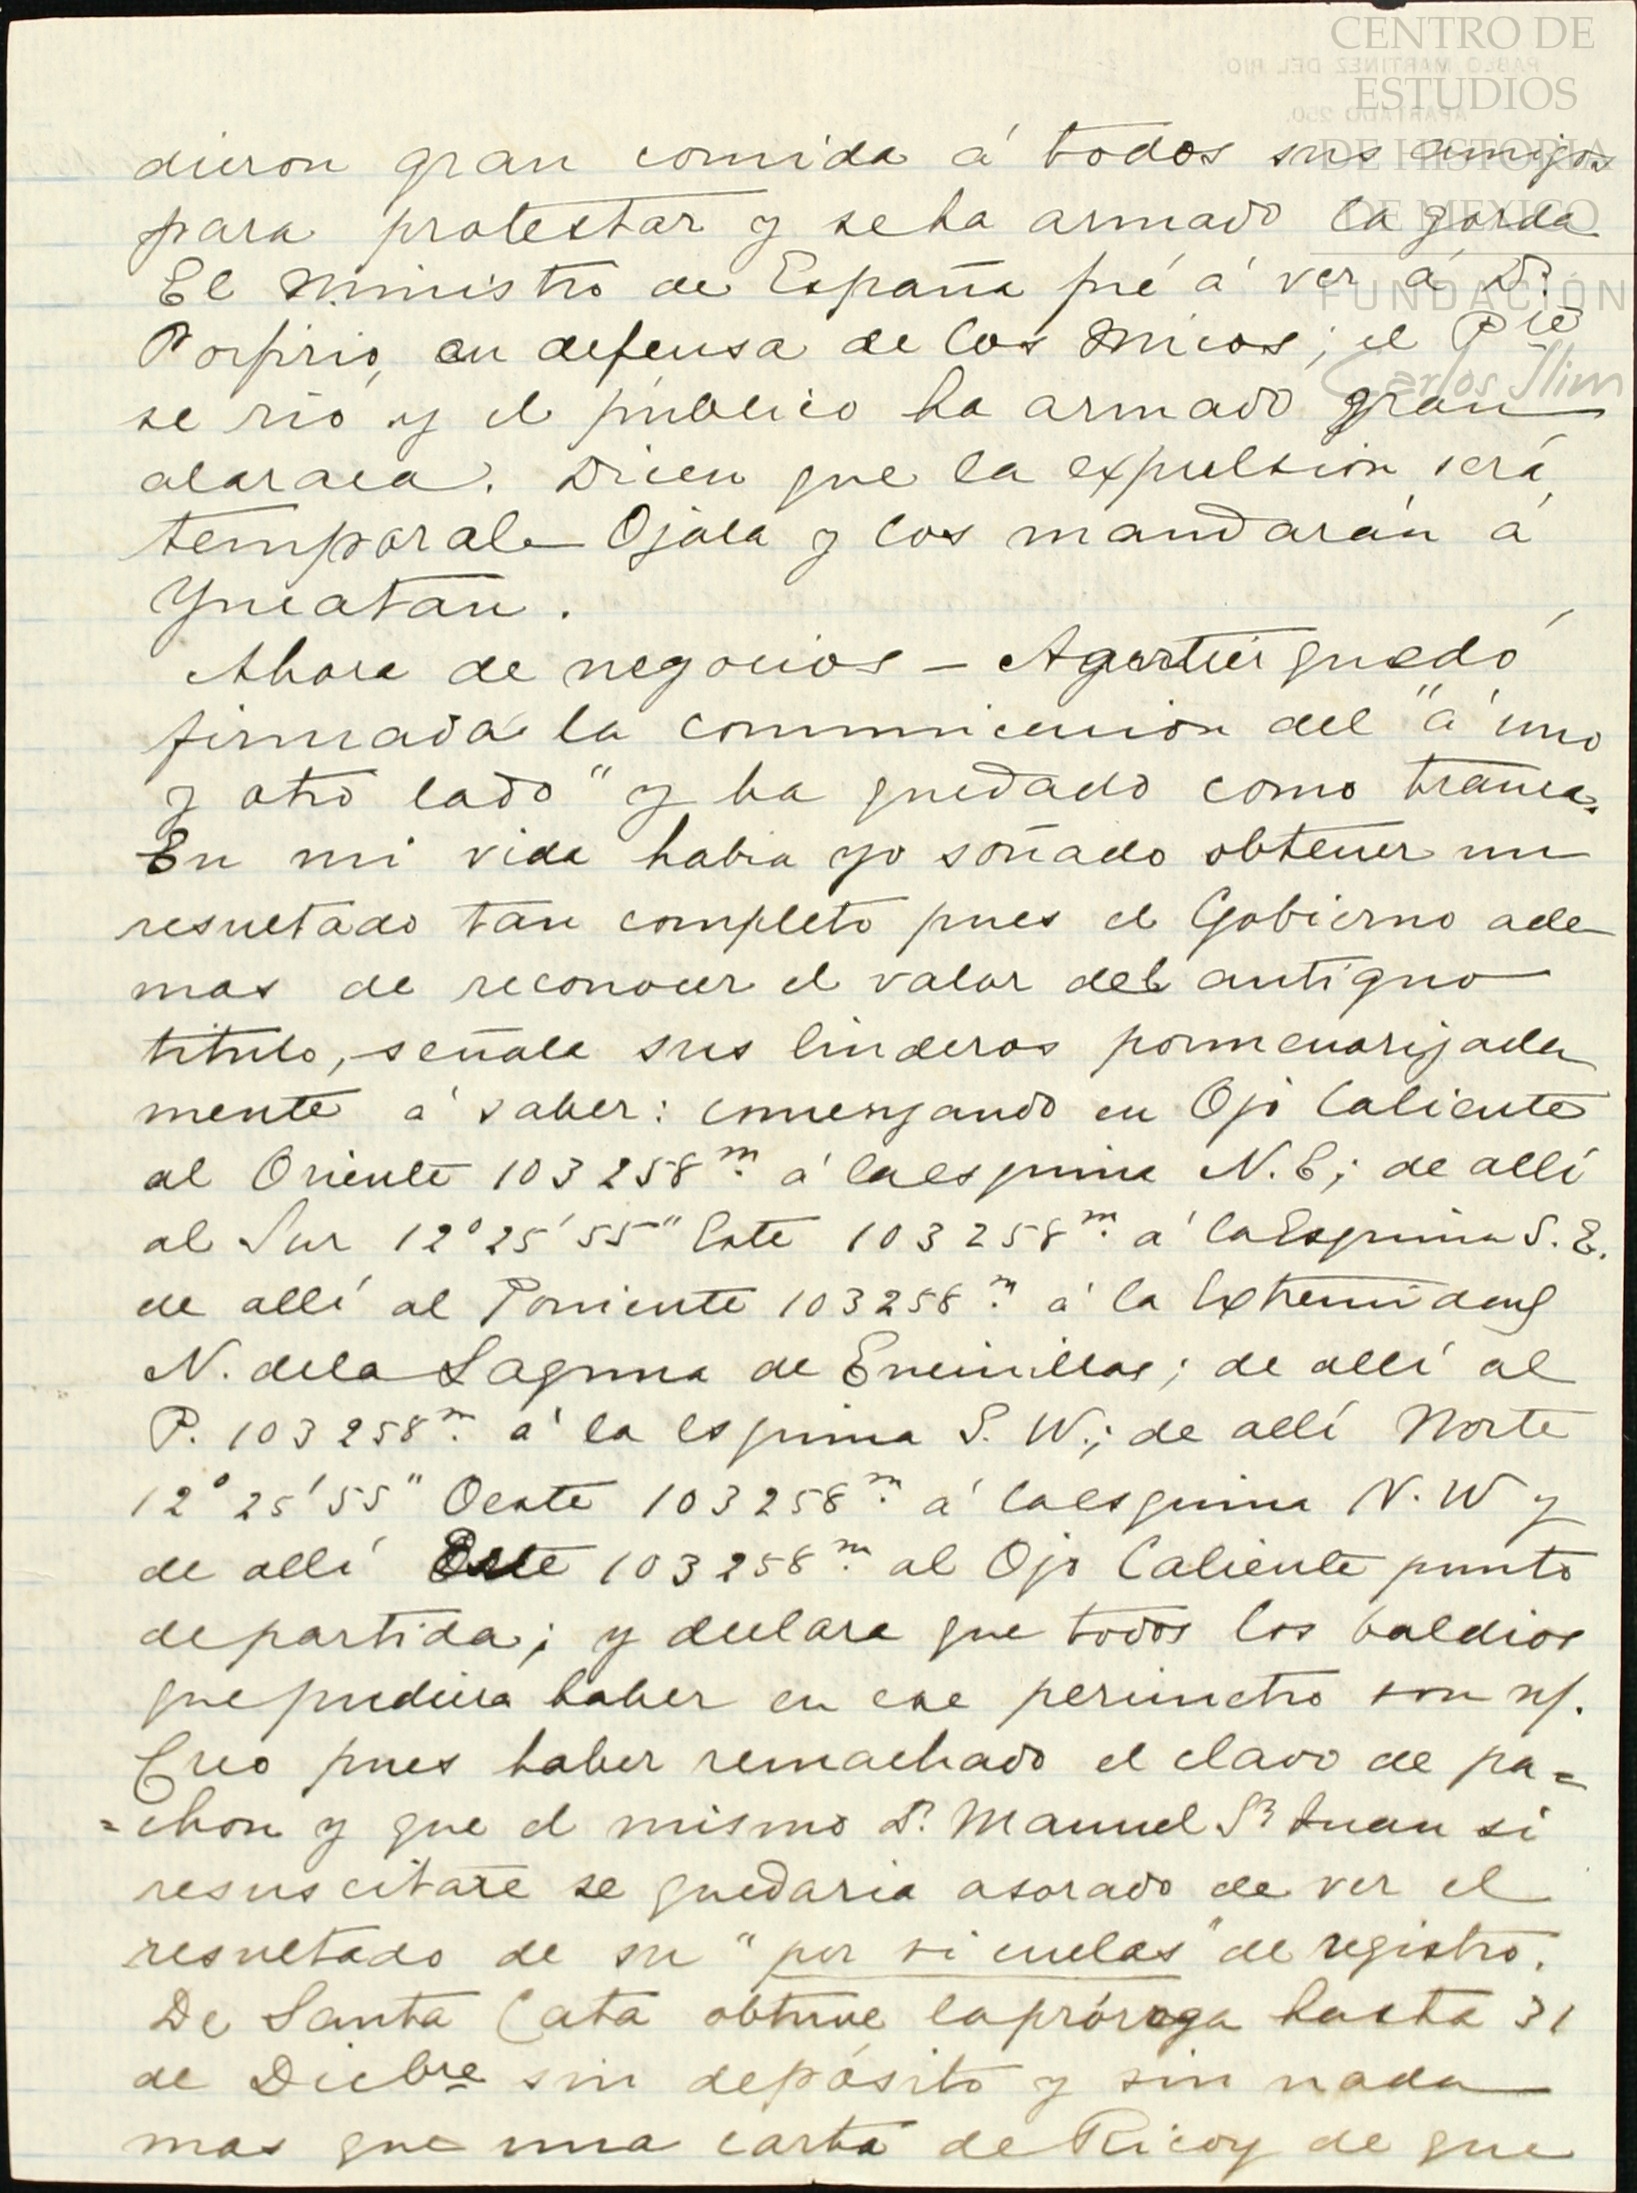 CENTRO DE
ESTUDIOS
DE HISTORIA
DE MEXICO
FUNDACIÓN
Carlos Slim
PABLO MARTINEZ DEL RIO.
APARTADO 250.
dieron gran comida á todos sus amigos
para protestar y se ha armado la gorda
El Ministro de España fué á ver á Dⁿ
Porfirio, en defensa de los micos; el Pte
se rió y el público ha armado gran
alaraca. Dicen que la expulsion será
temporal Ojala y los mandarán á
Yucatan.
Ahora de negocios – quedó
firmada la comunicacion del "á uno
y otro lado" y ha quedado como tranca.
En mi vida habia yo soñado obtener un
resultado tan completo pues el Gobierno ade
mas de reconocer el valor del antiguo
titulo, señala sus linderos pormenorizada
mente á saber: comenzando en Ojo Caliente
al Oriente 103258m. á la esquina N.E; de allí
al Sur 12°25'55" Este 103258m. á la Esquina S.E.
de allí al Poniente 103258m. á la Extremidad
N. de la Laguna de Encinillas; de allí al
P. 103258m. á la esquina S.W.; de allí Norte
12°25'55" Oeste 103258m. á la esquina N.W y
de allí Este 103258m. al Ojo Caliente punto
de partida; y declara que todos los baldios
que pudiera haber en ese perimetro son
Creo pues haber remachado el clavo de pa=
=chon y que el mismo Dⁿ Manuel Sⁿ Juan si
resuscitare se quedaria asorado de ver el
resultado de su "por si cuelas" de registro.
De Santa Cata obtuve la próroga hasta 31
de Dicbre sin depósito y sin nada
mas que una carta de Ricoy de que